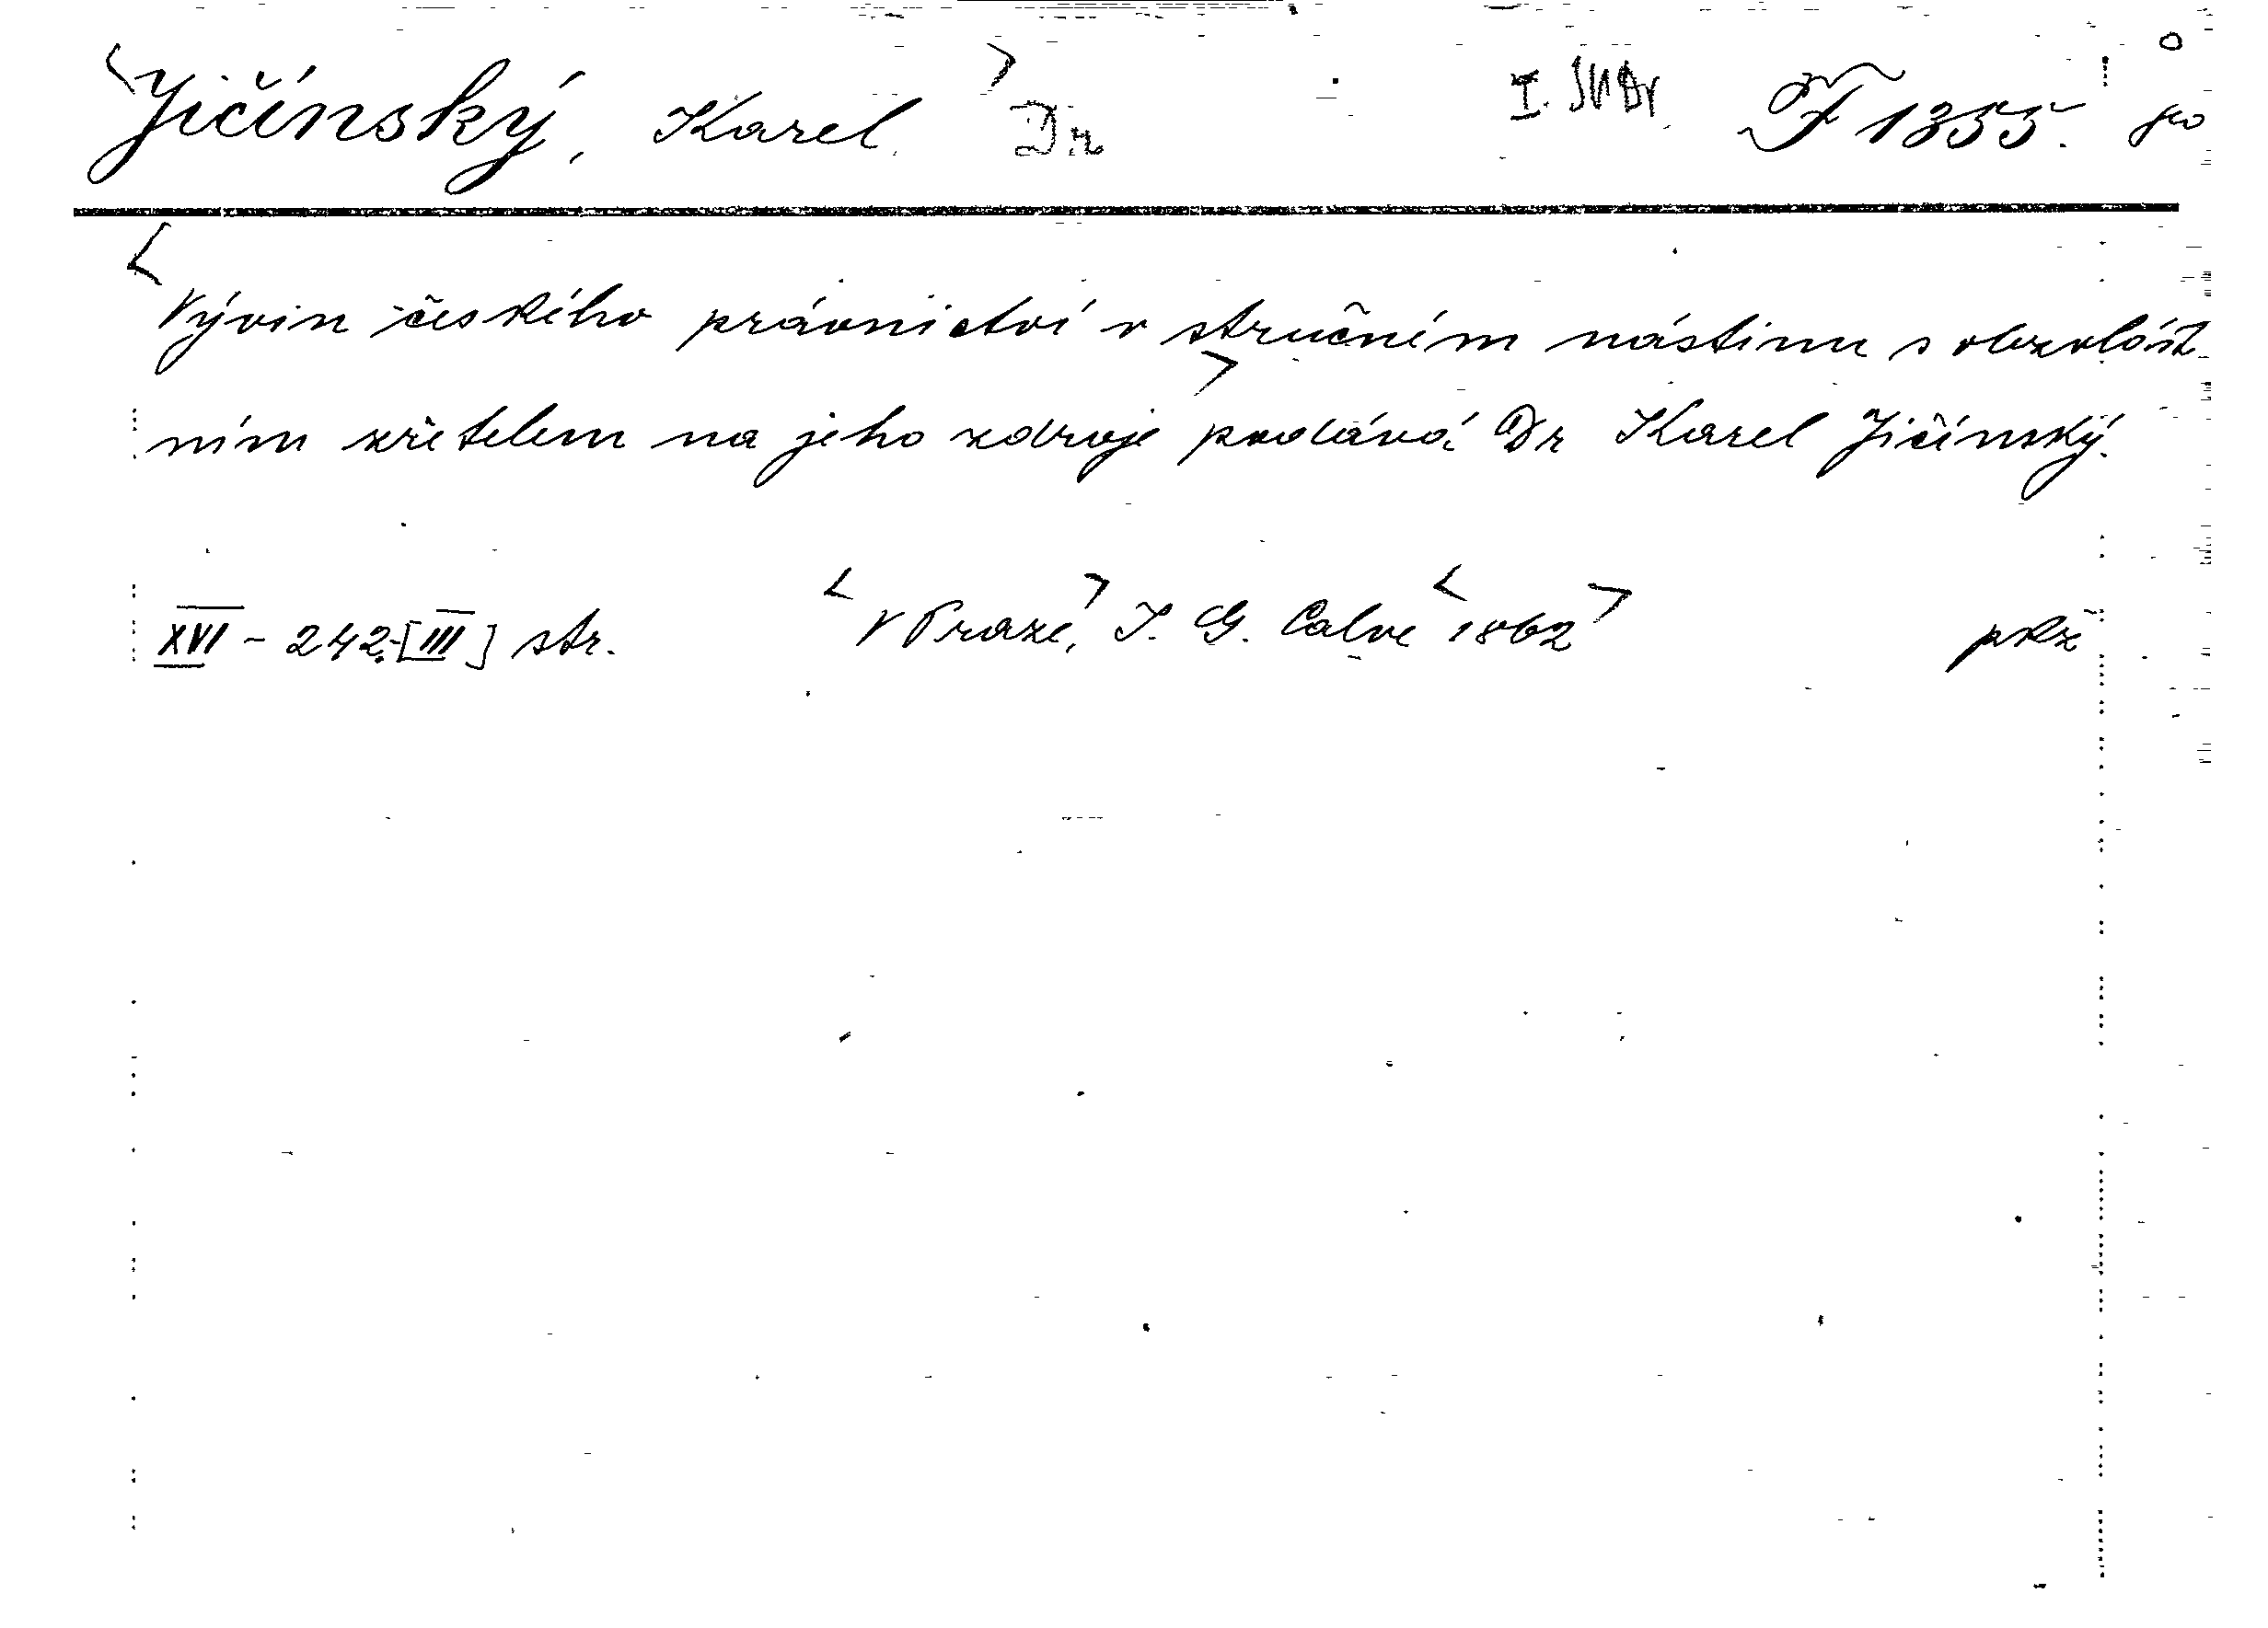 <Jičínský, Karel.> Dr. I. JUDr. F 1355.
<Vývin českého právnictví v stručném nástinu s obzvlášt-
ním zřetelem na jeho zdroje> podává Dr Karel Jičínský.
XVI - 242-[III] str. <V Praze,> I. G. Calve <1862> pkz